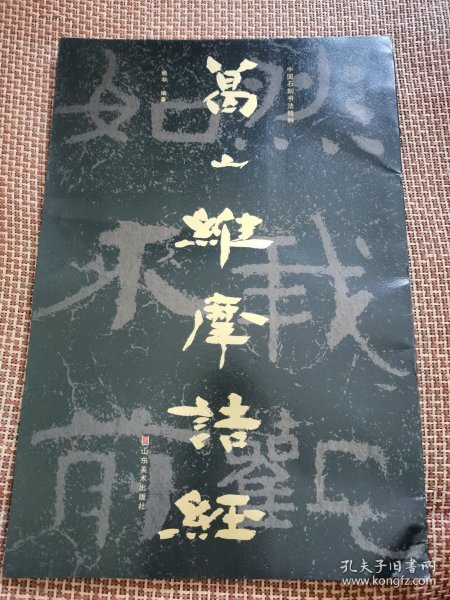 中国石刻书法精粹
葛山維摩詰經
编著
山东美术出版社
然我觀
如不前
孔夫子旧书网
www.kongfz.com